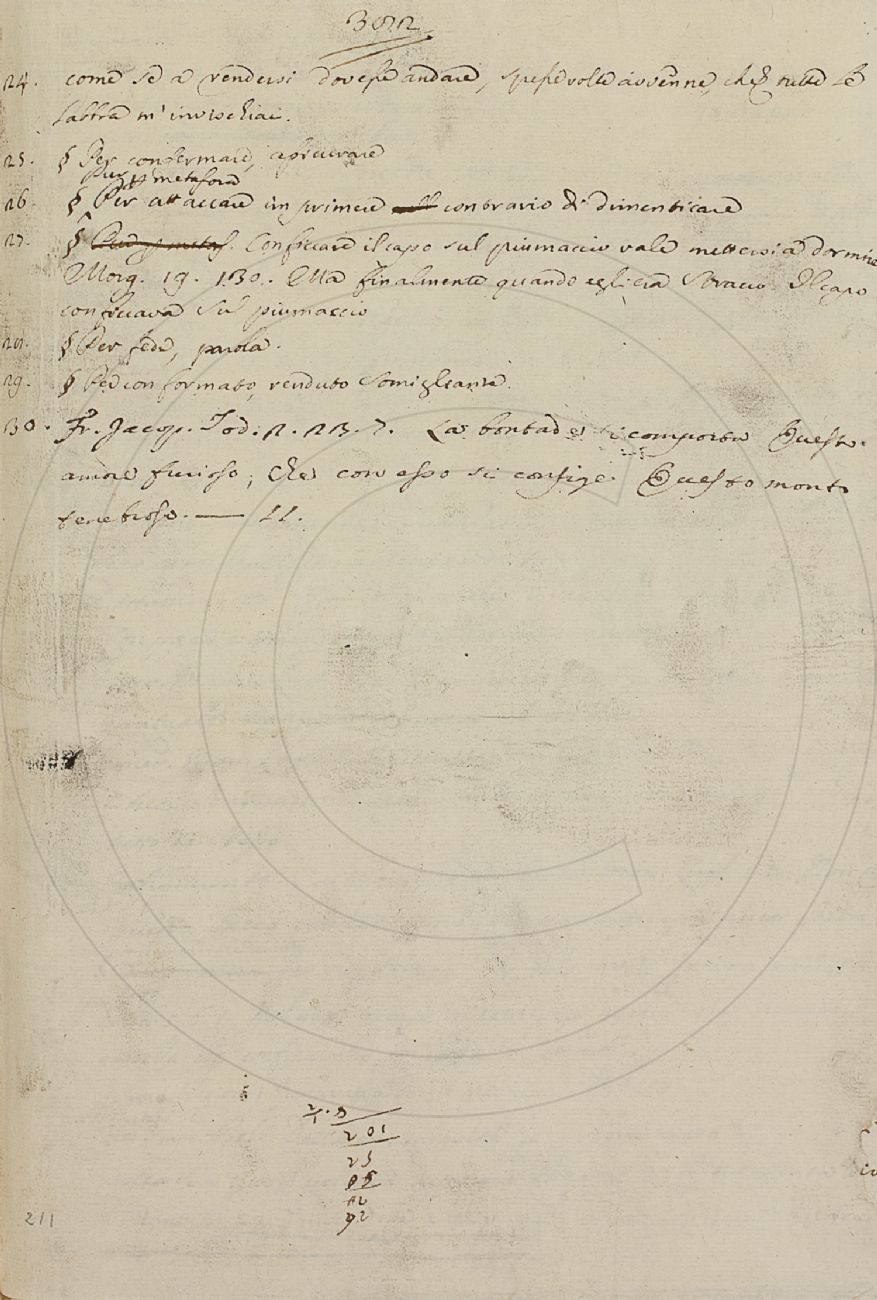 24. come se a rendersi dovesse andare, spesse volte avvenne, che tutte le
labbra m'invischiai.
25. § Per confermare, assicurare
Per metafora
26. § Per attaccare imprimere contrario di dimenticare
27. § Conficcare il capo sul piumaccio vale mettersi a dormire
Morg. 19. 130. Ma finalmente quando egli era stracco Il capo
conficcava sul piumaccio
§ Per fede, parola.
29. § Per conformato, renduto somigliante.
30. Fr. Jacop. Tod. 2. 23. 7. La bontade si comporta Questo
amore furioso, Che con esso si configge Questo monte
tenebroso. — 11.
201
25
92
211